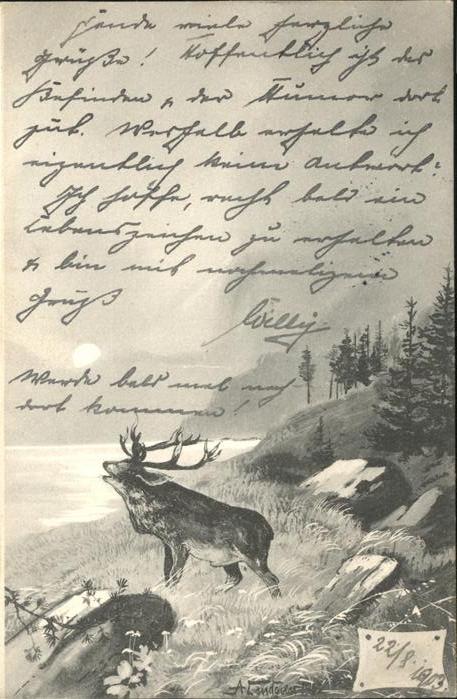 Sende viele herzliche
Grüße! Hoffentlich ist das
Befinden u. der Humor dort
gut. Weshalb erhalte ich
eigentlich keine Antwort?
Ich hoffe, recht bald ein
Lebenszeichen zu erhalten
& bin mit nochmaligem
Gruß
Willy
Werde bald mal nach
dort kommen!
22/8.